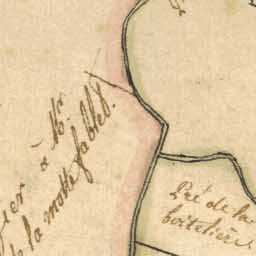 ier à Mr
de la motte fablet.
Pré de la
boitelière